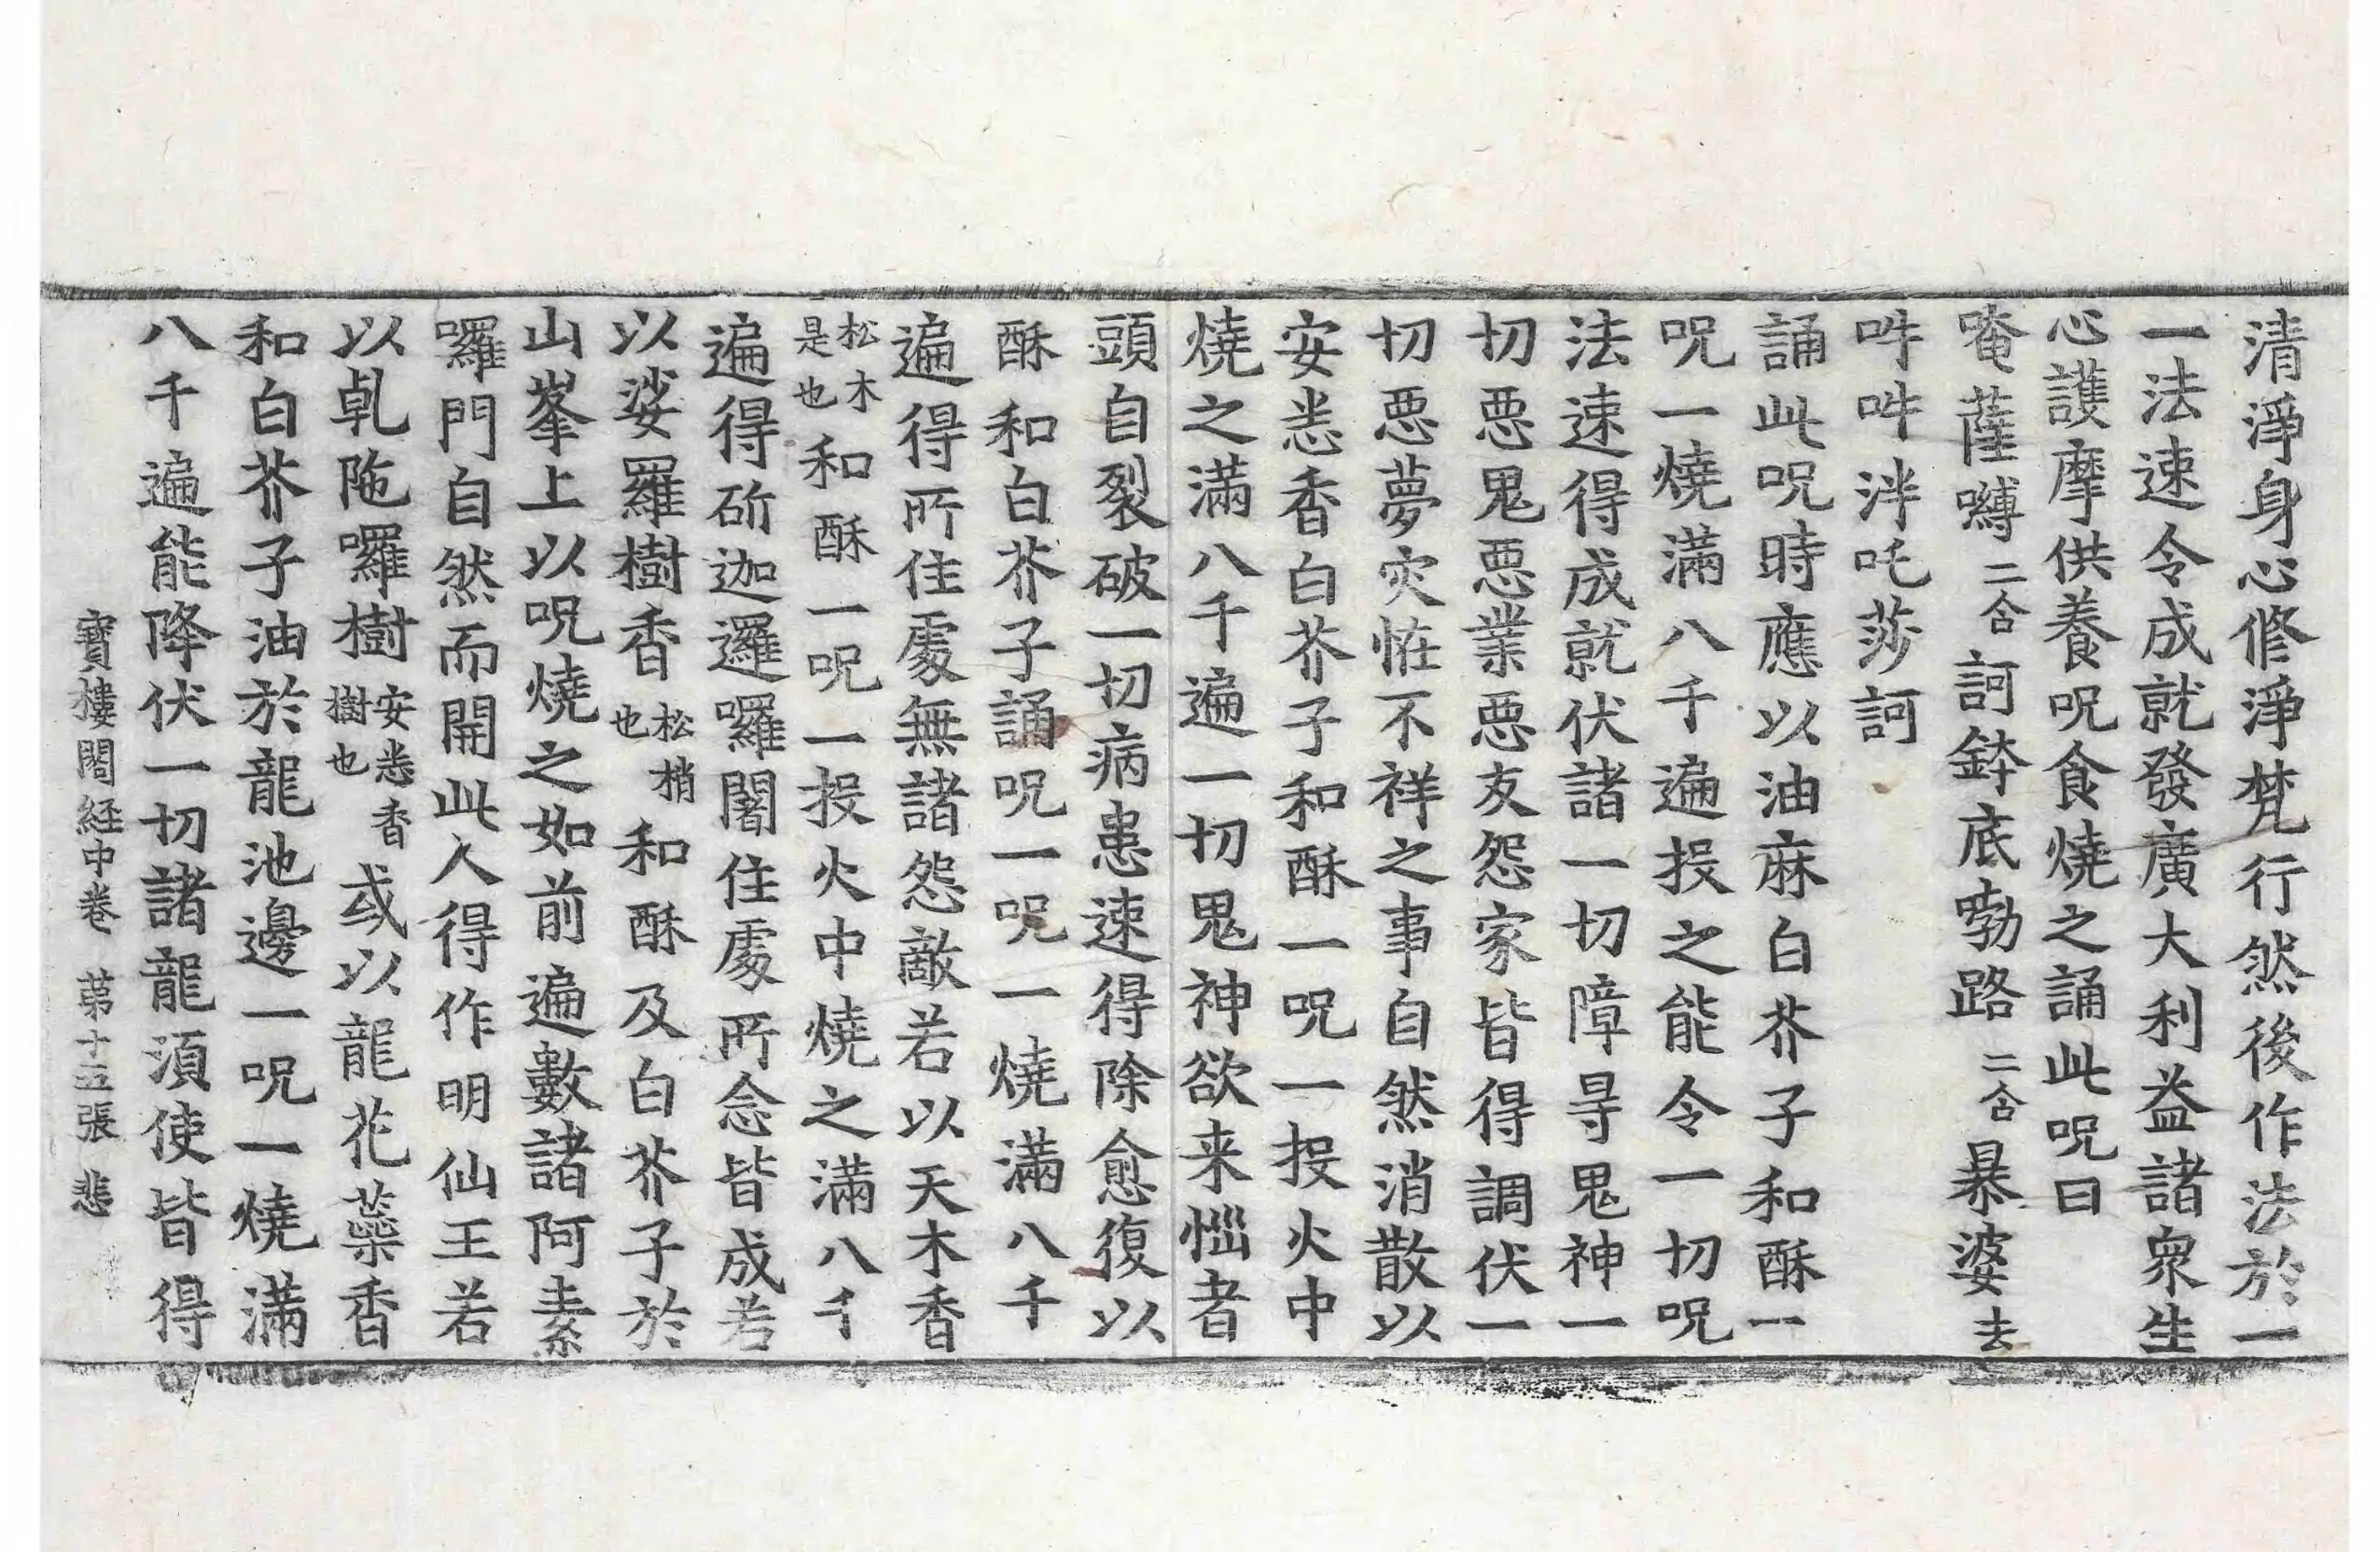 清淨身心修淨梵行然後作法於一
一法速令成就發廣大利益諸衆生
心護摩供養呪食燒之誦此呪曰
唵薩嚩二合訶鉢底㘑路二合暴婆去
吽吽泮吒莎訶
誦此呪時應以油麻白芥子和酥一
呪一燒滿八千遍投之能令一切呪
法速得成就伏諸一切障㝵鬼神一
切惡鬼惡業惡友怨家皆得調伏一
切惡夢灾恠不祥之事自然消散以
安悉香白芥子和酥一呪一投火中
燒之滿八千遍一切鬼神欲来惱者
頭自裂破一切病患速得除愈復以
酥和白芥子誦呪一呪一燒滿八千
遍得所住處無諸怨敵若以天木香
松木是也和酥一呪一投火中燒之滿八千
遍得斫迦邏囉闍住處所念皆成若
以娑羅樹香松梢也和酥及白芥子於
山峯上以呪燒之如前遍數諸阿素
囉門自然而開此人得作明仙王若
以乹陁囉樹安悉香樹也或以龍花藥香
和白芥子油於龍池邊一呪一燒滿
八千遍能降伏一切諸龍湏使皆得
寶樓閣経中卷 第十五張 悲